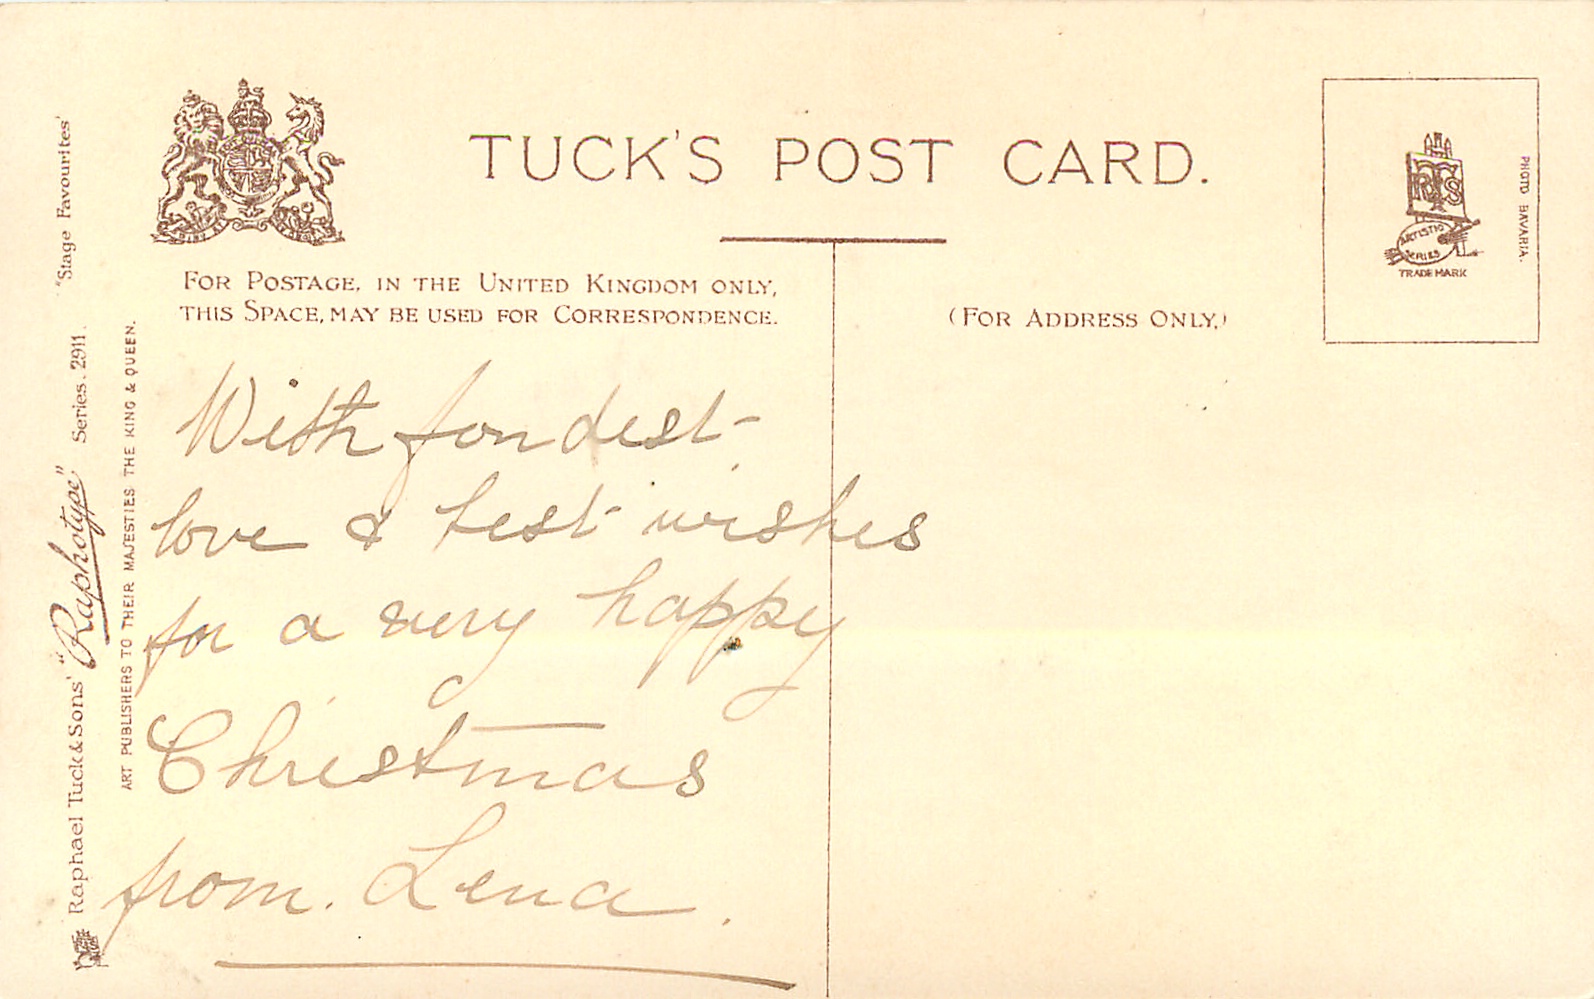 TUCK'S POST CARD.
FOR POSTAGE, IN THE UNITED KINGDOM ONLY,
THIS SPACE, MAY BE USED FOR CORRESPONDENCE.
(FOR ADDRESS ONLY,)
RTS
ARTISTIC
SERIES
TRADE MARK
PHOTO BAVARIA.
With fondest
love & best wishes
for a very happy
Christmas
from. Lena.
Raphael Tuck & Sons' "Raphotype" Series. 2911. "Stage Favourites'
ART PUBLISHERS TO THEIR MAJESTIES THE KING & QUEEN.